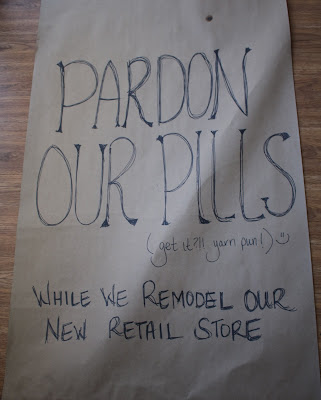 PARDON
OUR PILLS
(get it?!! yarn pun!) :)
WHILE WE REMODEL OUR
NEW RETAIL STORE